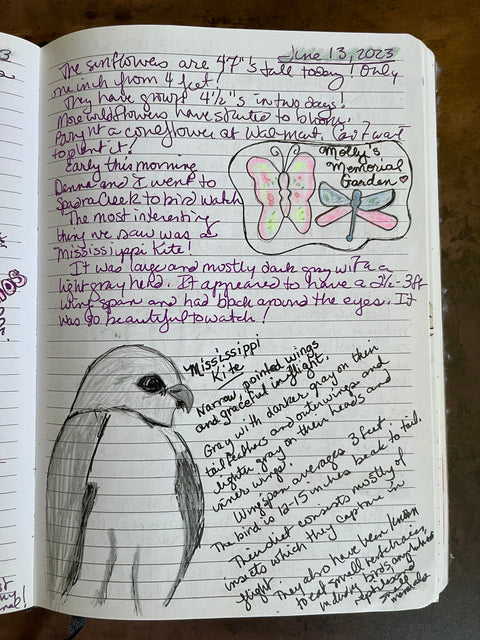 June 13, 2023
The sunflowers are 47"s tall today! Only
one inch from 4 feet!
They have grown 4½"s in two days!
More wildflowers have started to bloom.
Bought a coneflower at Walmart. Can't wait
to plant it!
Early this morning
Denna and I went to
Spadra Creek to bird watch
The most interesting
thing we saw was a
Mississippi Kite!
It was large and mostly dark gray with a
light gray head. It appeared to have a 2½-3 ft
wing span and had black around the eyes. It
was so beautiful to watch!
Molly's
Memorial
Garden
Mississippi
Kite
Narrow, pointed wings
and graceful in flight.
Gray with darker gray on their
tail feathers and outer wings and
lighter gray on their heads and
inner wings.
Wing span averages 3 feet.
The bird is 12-15 inches beak to tail.
Their diet consists mostly of
insects which they capture in
flight
They also have been known
to eat small vertebraes,
including birds, amphibians
reptiles and
small
mammals